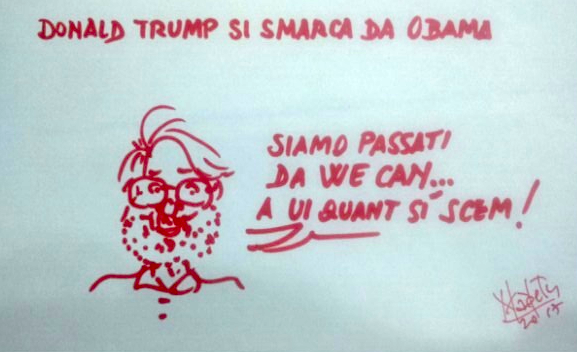 DONALD TRUMP SI SMARCA DA OBAMA
SIAMO PASSATI
DA WE CAN...
A UI QUANT SÍ SCEM!